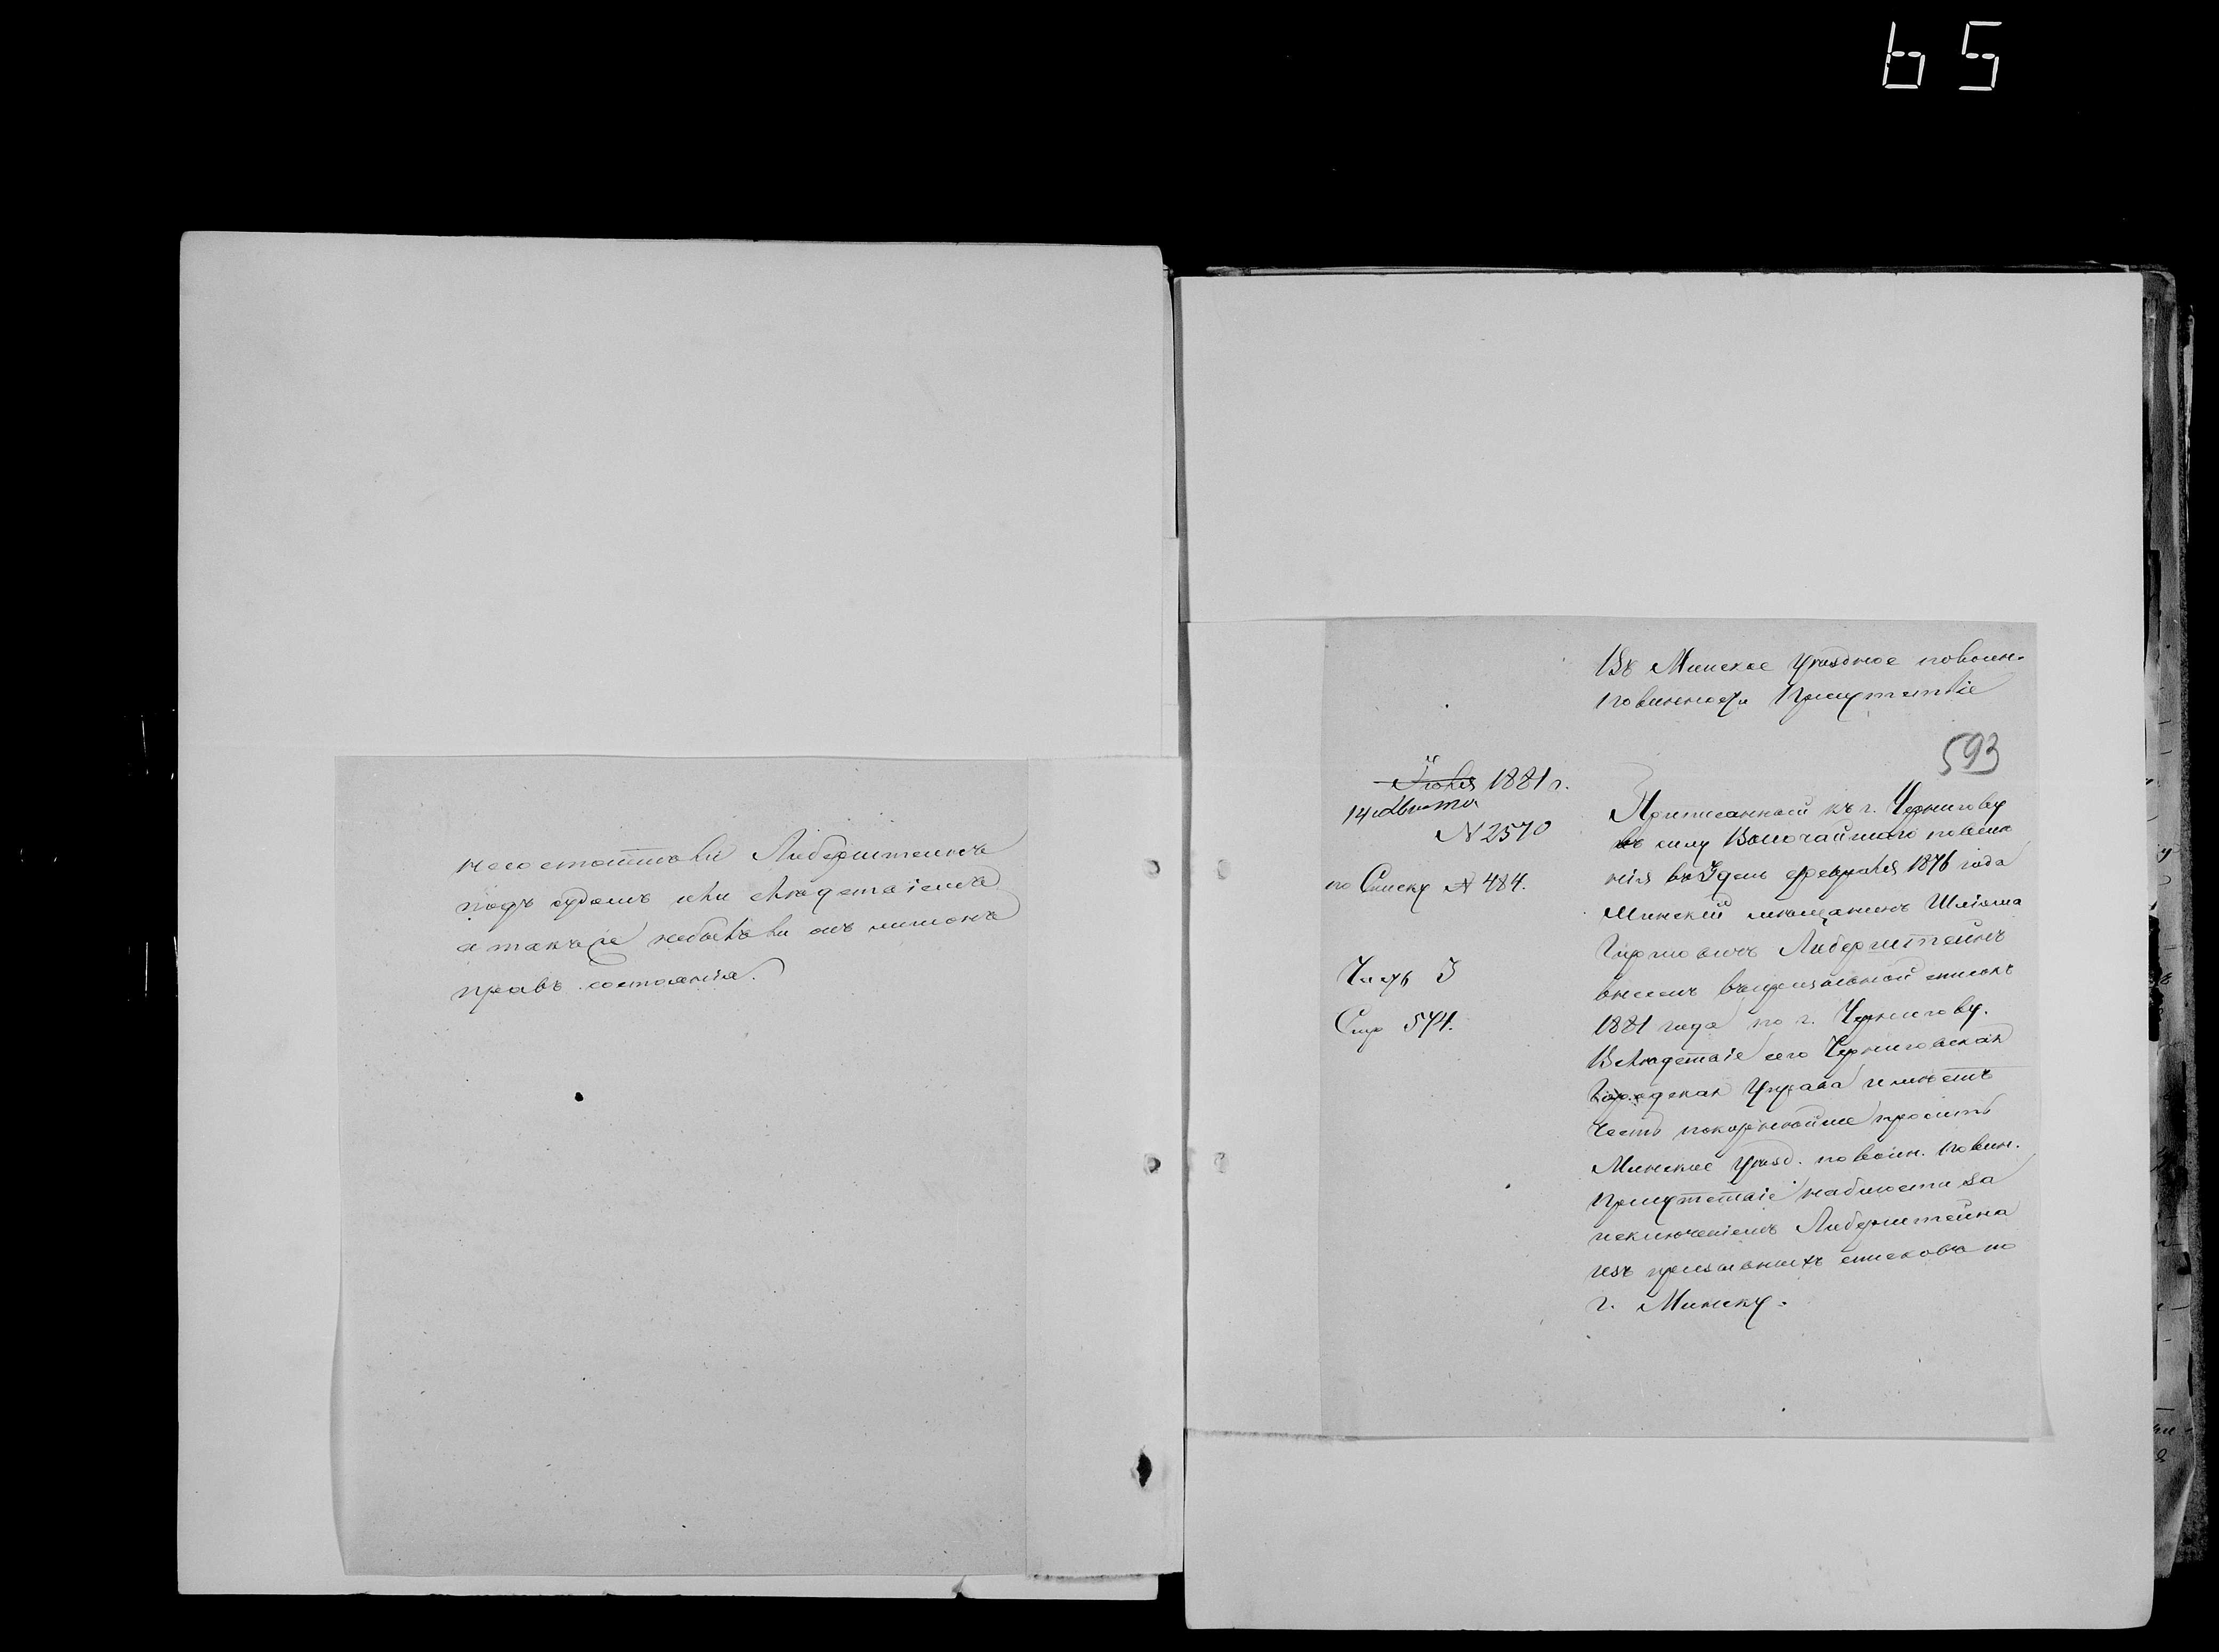 65
несостоитъ ли Либерштейнъ
подъ судомъ или слѣдствіемъ
а также небылъ ли онъ лишонъ
правъ состоянія.
Въ Минское Уѣздное повоин.
повинности Присутствіе
593
Іюля 1881 г.
14 Августа
N 2570
по Списку N 484.
Часть I
Стр 544.
Приписанный къ г. Чернигову
въ силу Высочайшаго повелѣ
нія въ 3 день февраля 1876 года
Минскій мѣщанинъ Шліома
Либерштейнъ
внесенъ въ призывной списокъ
1881 года по г. Чернигову.
Вслѣдствіе сего Черниговская
Городская Управа имѣетъ
честь покорнѣйше просить
Минское Уѣзд. по воин. повин.
Присутствіе
исключеніемъ Либерштейна
изъ призывныхъ списковъ по
г. Минску.